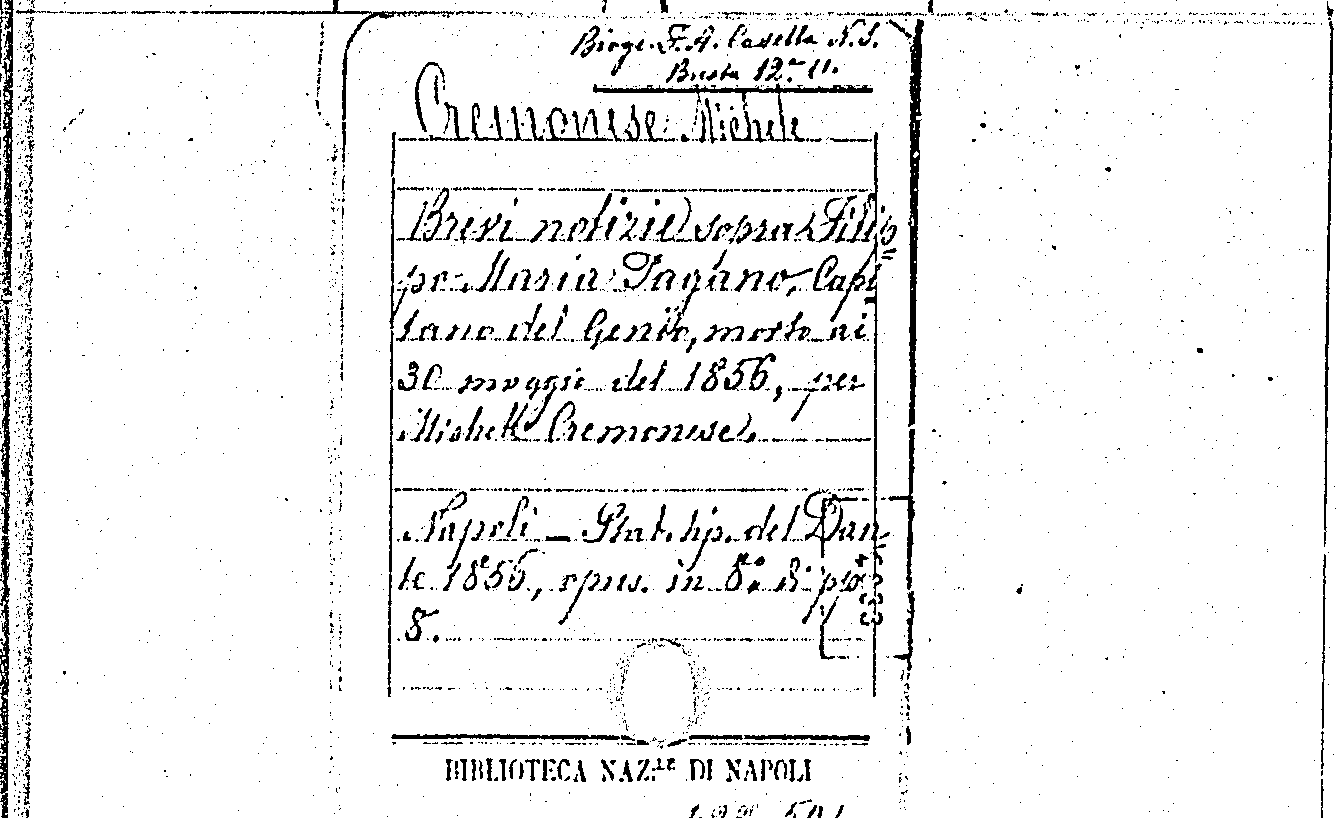 Biogr. F. A. Casella N. S.
Busta 12.ª 11.
Cremonese Michele
Brevi notizie sopra Filip
po Maria Pagano, Capi
tano del Genio, morto ai
30 maggio del 1856, per
Michele Cremonese.
Napoli – Stab. tip. del Dan
te 1856, opus. in 8.º di pp.
8.
BIBLIOTECA NAZ.LE DI NAPOLI